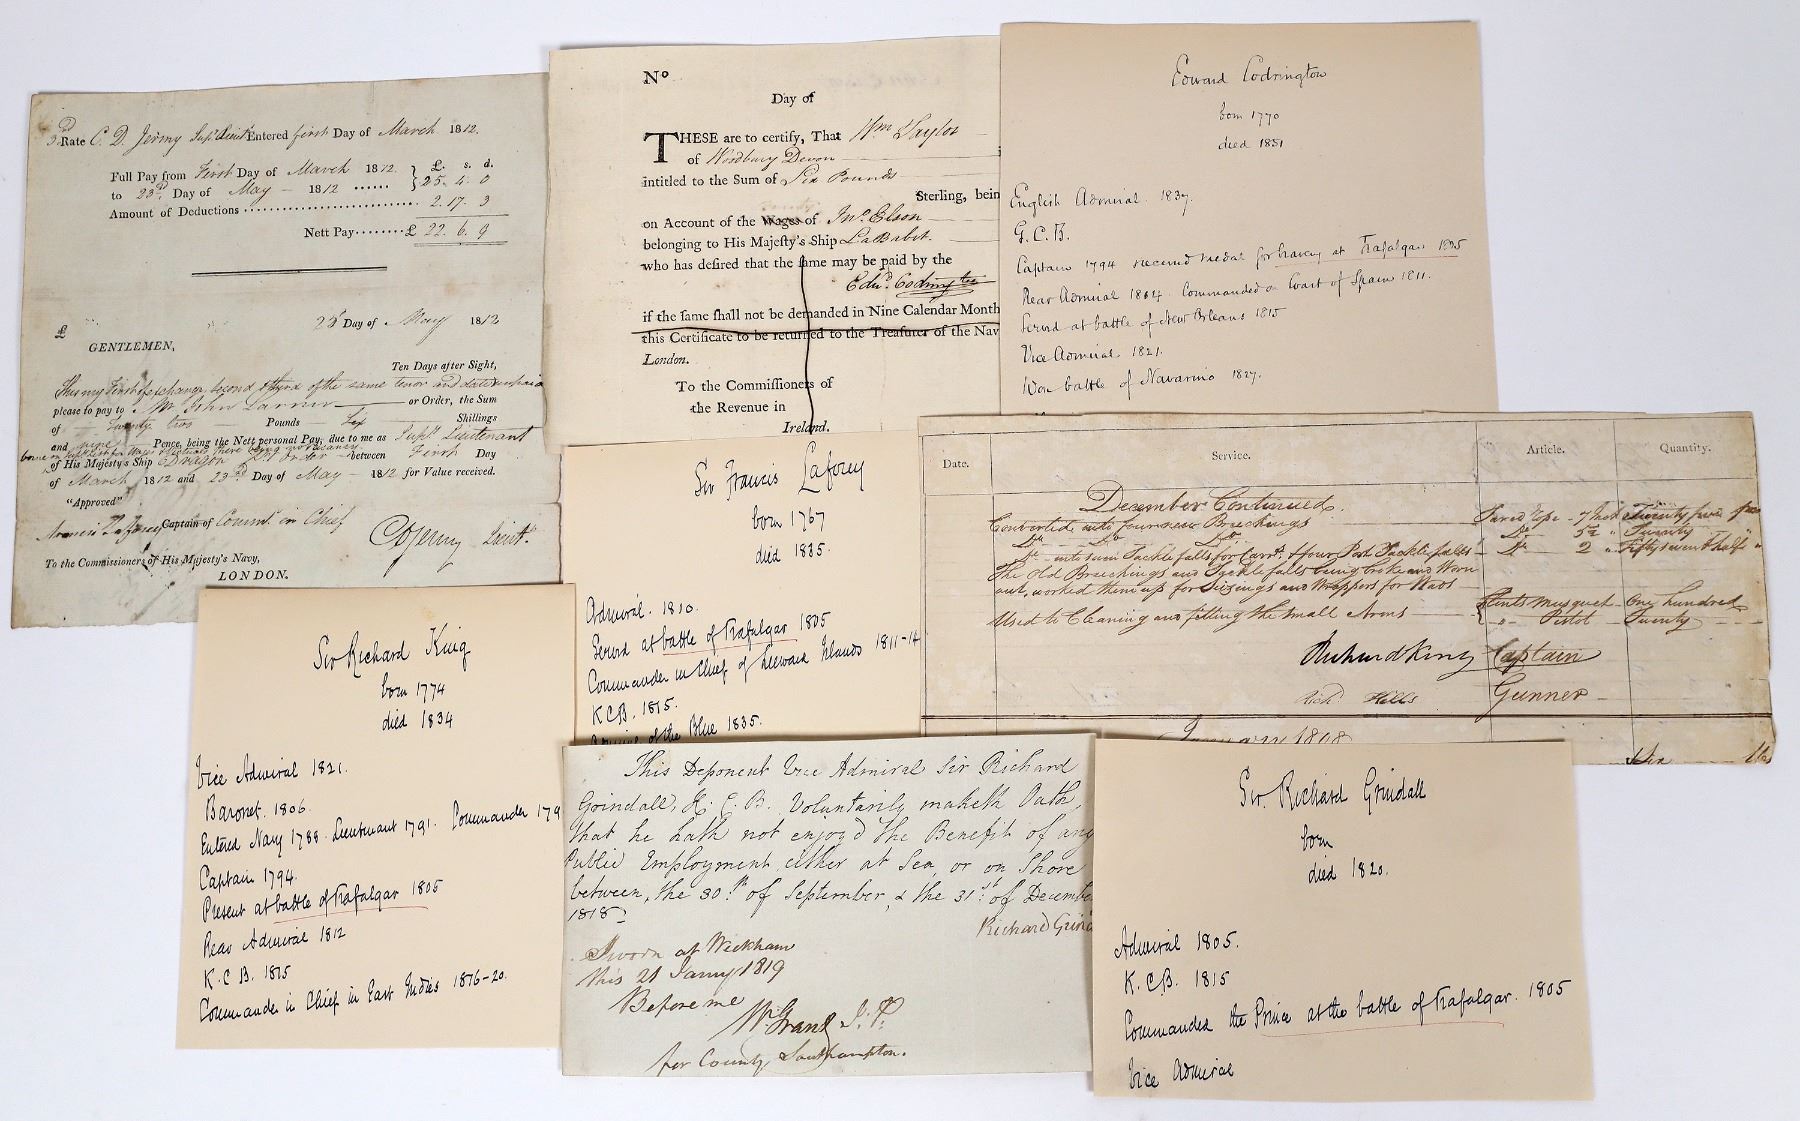 3d Rate C. D. Jermy Supy Lieut Entered first Day of March 1812.
Full Pay from First Day of March 1812
to 23rd Day of May - 1812 ...... } 25. 4. 0
£. s. d.
Amount of Deductions .......... 2. 17. 3
Nett Pay ........ £ 22. 6. 9
£
23d Day of May 1812
GENTLEMEN,
Ten Days after Sight,
This my First of exchange, second & third of the same tenor and date unpaid
please to pay to Mr. John Larner or Order, the Sum
of Twenty two Pounds Six Shillings
and nine Pence, being the Nett personal Pay, due to me as Supy. Lieutenant
of His Majesty's Ship Dragon between First Day
of March 1812 and 23rd Day of May - 1812 for Value received.
"Approved"
Francis Laforey Captain of Commr. in Chief
C D Jermy Lieut.
To the Commissioners of His Majesty's Navy,
LONDON.
No
Day of
THESE are to certify, That Wm Taylor
of Woodbury Devon
intitled to the Sum of Six Pounds
Sterling, bein
on Account of the Wages of Jno. Elson
belonging to His Majesty's Ship La Babet.
who has desired that the same may be paid by the
Edwd. Codrington
if the same shall not be demanded in Nine Calendar Month
this Certificate to be returned to the Treasurer of the Nav
London.
To the Commissioners of
the Revenue in
Ireland.
Edward Codrington
born 1770
died 1851
English Admiral. 1837.
G.C.B.
Captain 1794 received medal for bravery at Trafalgar 1805
Rear Admiral 1814. Commanded on Coast of Spain 1811.
Served at battle of New Orleans 1815
Vice Admiral 1821.
Won battle of Navarino 1827.
Sir Francis Laforey
born 1767
died 1835.
Admiral. 1810.
Served at battle of Trafalgar 1805
Commander in Chief of Leeward Islands 1811-14
K.C.B. 1815.
Admiral of the Blue 1835.
Date. Service. Article. Quantity.
December Continued.
Converted into fourteen Breechings Tared rope - 7 Inch Twenty five
Do. Do. Do. Do. 5½ " Twenty
Do. into seven Tackle falls for Carrs. & four Port Tackle falls - Do. 2 " Fifty seven & half "
The Old Breechings and Tackle falls being broke and Worn
out, worked them up for Seizings and Wrappers for Wads
Used to Cleaning and fitting the small Arms { Flints Musquet - One hundred
" Pistol - Twenty
Richard King Captain
Richd. Hills Gunner
January 1808
Sir Richard King
born 1774
died 1834
Vice Admiral 1821.
Baronet. 1806.
Entered Navy 1788. Lieutenant 1791. Commander 179
Captain 1794.
Present at battle of Trafalgar 1805
Rear Admiral 1812
K.C.B. 1815
Commander in Chief in East Indies 1816-20.
This Deponent Vice Admiral Sir Richard
Grindall, K.C.B. Voluntarily maketh Oath,
that he hath not enjoy'd the Benefit of any
Public Employment either at Sea, or on Shore
between, the 30th of September, & the 31st of Decembe
1818
Richard Grind
Sworn at Wickham
this 21 Jany 1819
Before me
Wm Grant J.P.
for County Southampton.
Sir Richard Grindall
born
died 1820.
Admiral 1805.
K.C.B. 1815
Commanded the Prince at the battle of Trafalgar. 1805
Vice Admiral